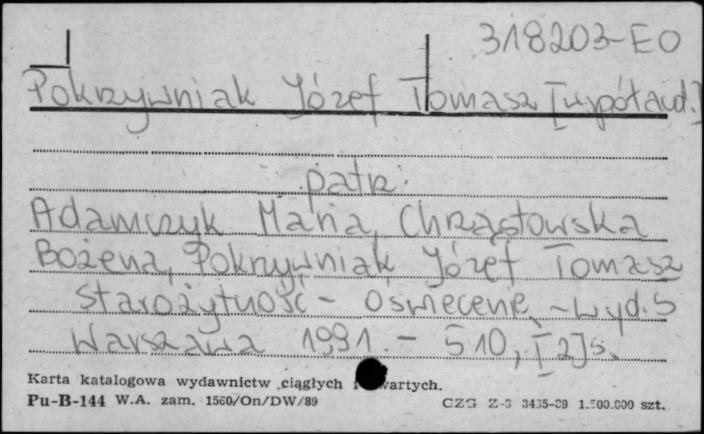 318203-EO
Pokrzywniak Józef Tomasz [współaut.]
patrz.
Adamczyk Maria, Chrząstowska
Bożena, Pokrzywniak Józef Tomasz
Starożytność - Oświecenie. - Wyd. 5
Warszawa 1991. - 510, [2] s.
Karta katalogowa wydawnictw ciągłych i zwartych.
Pu-B-144 W.A. zam. 1560/On/DW/89 CZG Z-3 3435-89 1.500.000 szt.